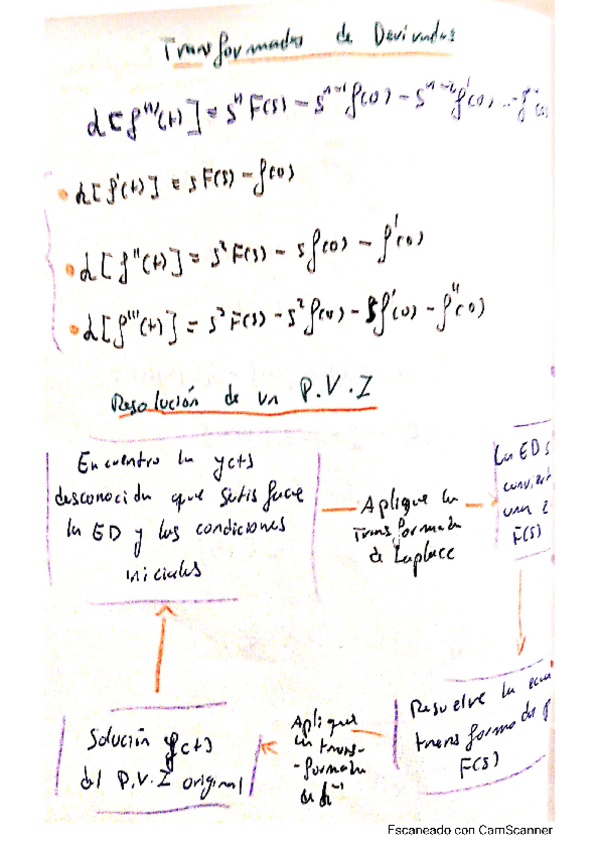 Transformadas de Derivadas
L[f⁽ⁿ⁾(t)] = sⁿF(s) - sⁿ⁻¹f(0) - sⁿ⁻²f'(0) ... - f
• L[f'(t)] = sF(s) - f(0)
• L[f''(t)] = s²F(s) - sf(0) - f'(0)
• L[f'''(t)] = s³F(s) - s²f(0) - sf'(0) - f''(0)
Resolución de un P.V.I
Encuentro la y(t)
desconocida que satisface
la ED y las condiciones
iniciales
Aplique la
Transformada
de Laplace
La ED s
conviert
una e
F(s)
Resuelve la ecua
transformada p
F(s)
Aplique
la trans-
-formada
de L⁻¹
Solución y(t)
del P.V.I original
Escaneado con CamScanner